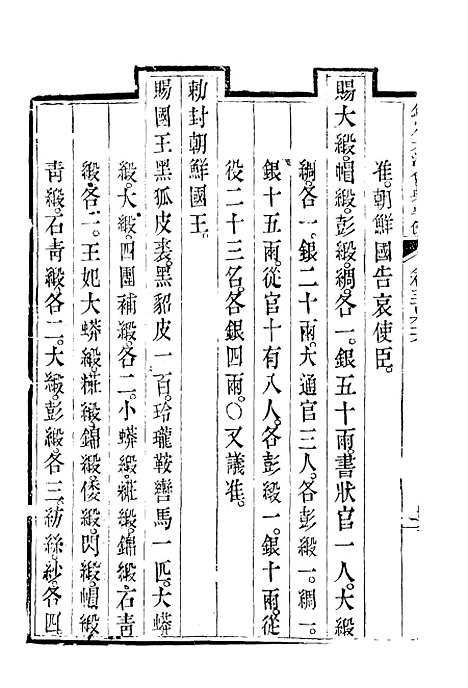 准朝鮮國告哀使臣。
賜大緞。帽緞。彭緞。綢各一。銀五十兩。書狀官一人。大緞
綢各一。銀二十兩。大通官三人。各彭緞一。綢一。
銀十五兩。從官十有八人。各彭緞一。銀十兩。從
役二十三名。各銀四兩。○又議准。
勅封朝鮮國王。
賜國王黑狐皮裘。黑貂皮一百。玲瓏鞍轡馬一匹。大蟒
緞。大緞。四團補緞。各二。小蟒緞。粧緞。錦緞。石青
緞。各二。王妃大蟒緞。粧緞。錦緞。倭緞。閃緞。帽緞
青緞。石青緞各二。大緞。彭緞。各三。紡絲。紗。各四。